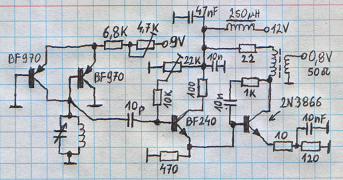 47nF
250µH
12V
6,8K
4,7K
9V
BF970
BF970
22K
22
0,8V
50Ω
10K
100
10n
10n
1K
2N3866
10p
BF240
470
10
10nF
120